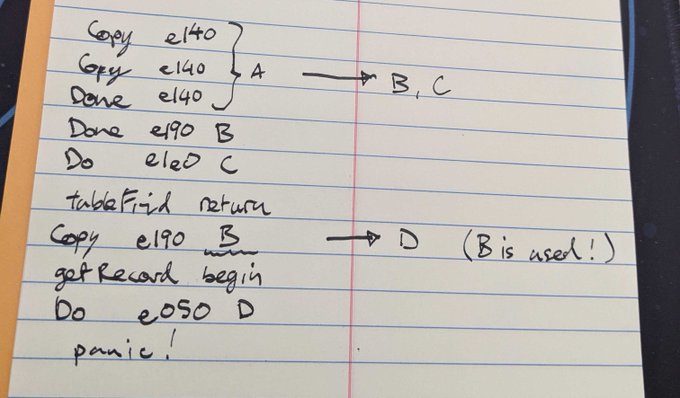 Copy e140
Copy e140 } A → B, C
Done e140
Done e190 B
Do e1e0 C
tableFind return
Copy e190 B → D (B is used!)
getRecord begin
Do e050 D
panic!